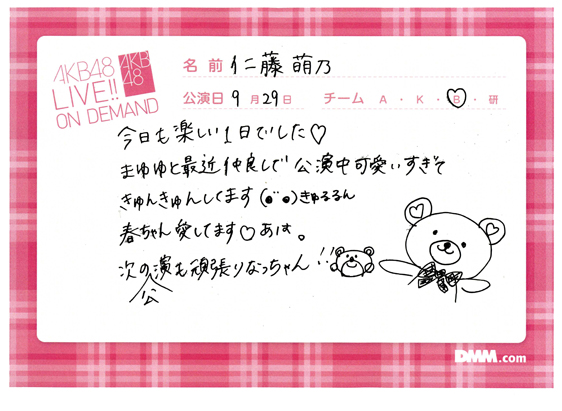 AKB48
LIVE!!
ON DEMAND
AKB
48
名前 仁藤萌乃
公演日 9月29日 チーム A・K・B・研
今日も楽しい1日でした♡
まゆゆと最近仲良しで 公演中可愛いすぎて
きゅんきゅんしてます(●¨●)きゅるるん
春ちゃん愛してます♡あは。
次の公演も頑張りなっちゃん!!
DMM.com